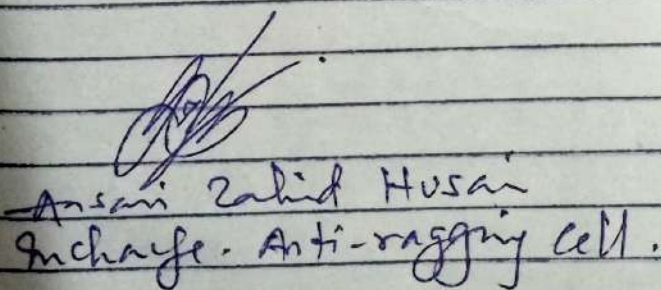 Ansari Zahid Husain
Incharge. Anti-ragging cell.